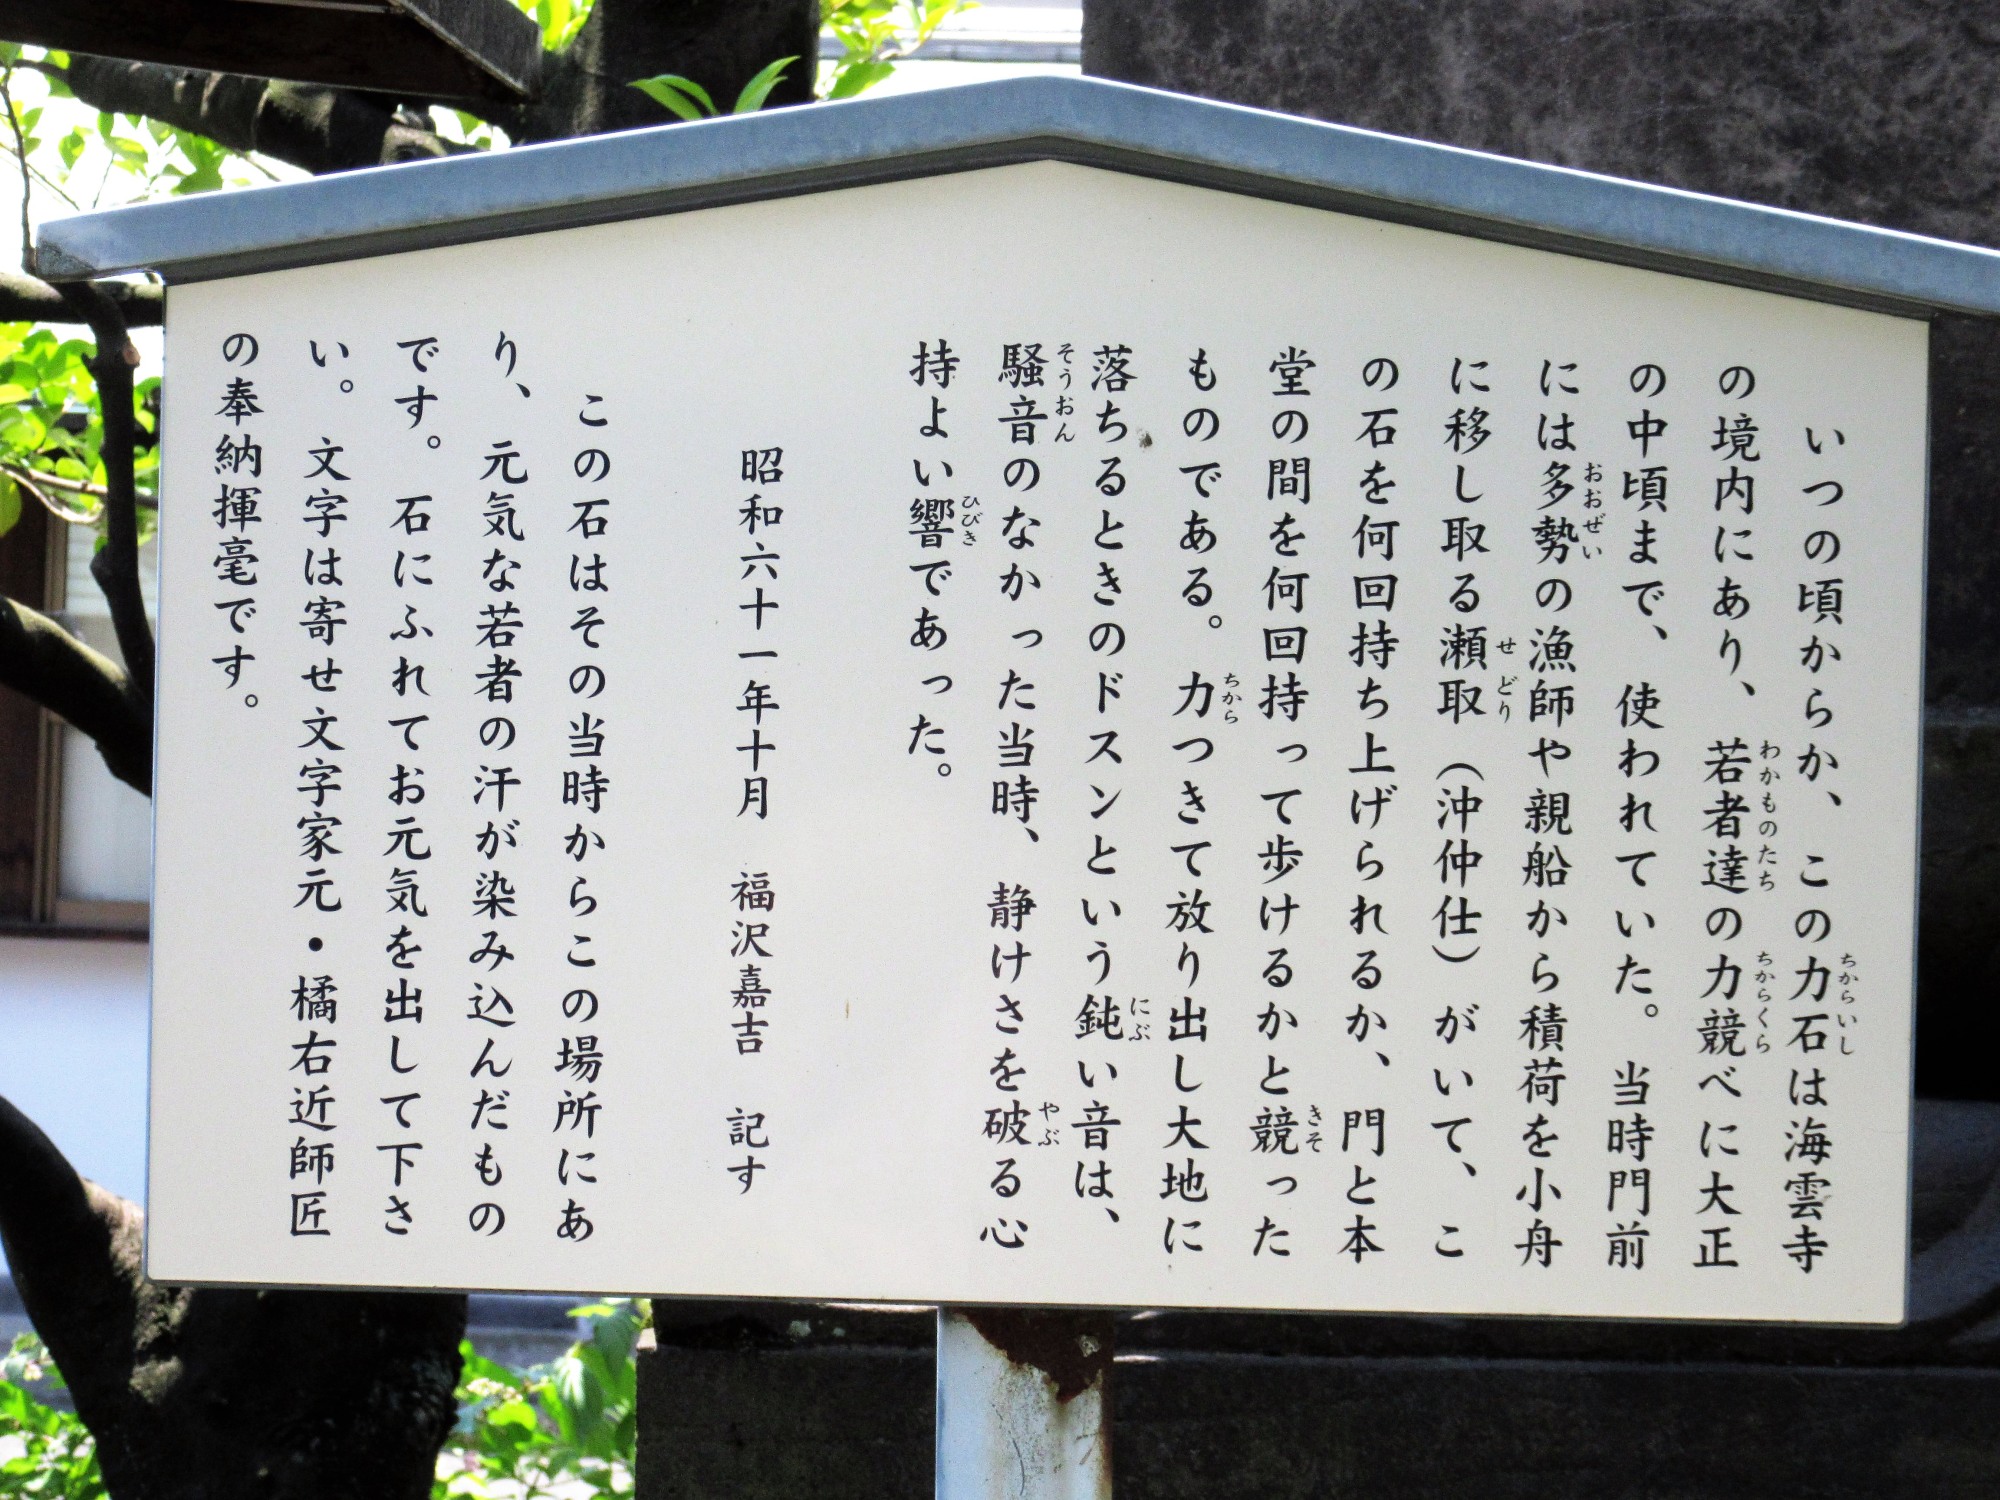 いつの頃からか、この力石は海雲寺
の境内にあり、若者達の力競べに大正
の中頃まで、使われていた。当時門前
には多勢の漁師や親船から積荷を小舟
に移し取る瀬取（沖仲仕）がいて、こ
の石を何回持ち上げられるか、門と本
堂の間を何回持って歩けるかと競った
ものである。力つきて放り出し大地に
落ちるときのドスンという鈍い音は、
騒音のなかった当時、静けさを破る心
持よい響であった。
昭和六十一年十月　福沢嘉吉　記す
この石はその当時からこの場所にあ
り、元気な若者の汗が染み込んだもの
です。石にふれてお元気を出して下さ
い。文字は寄せ文字家元・橘右近師匠
の奉納揮毫です。
ちからいし
わかものたち
ちからくら
おおぜい
せどり
きそ
ちから
にぶ
そうおん
やぶ
ひびき